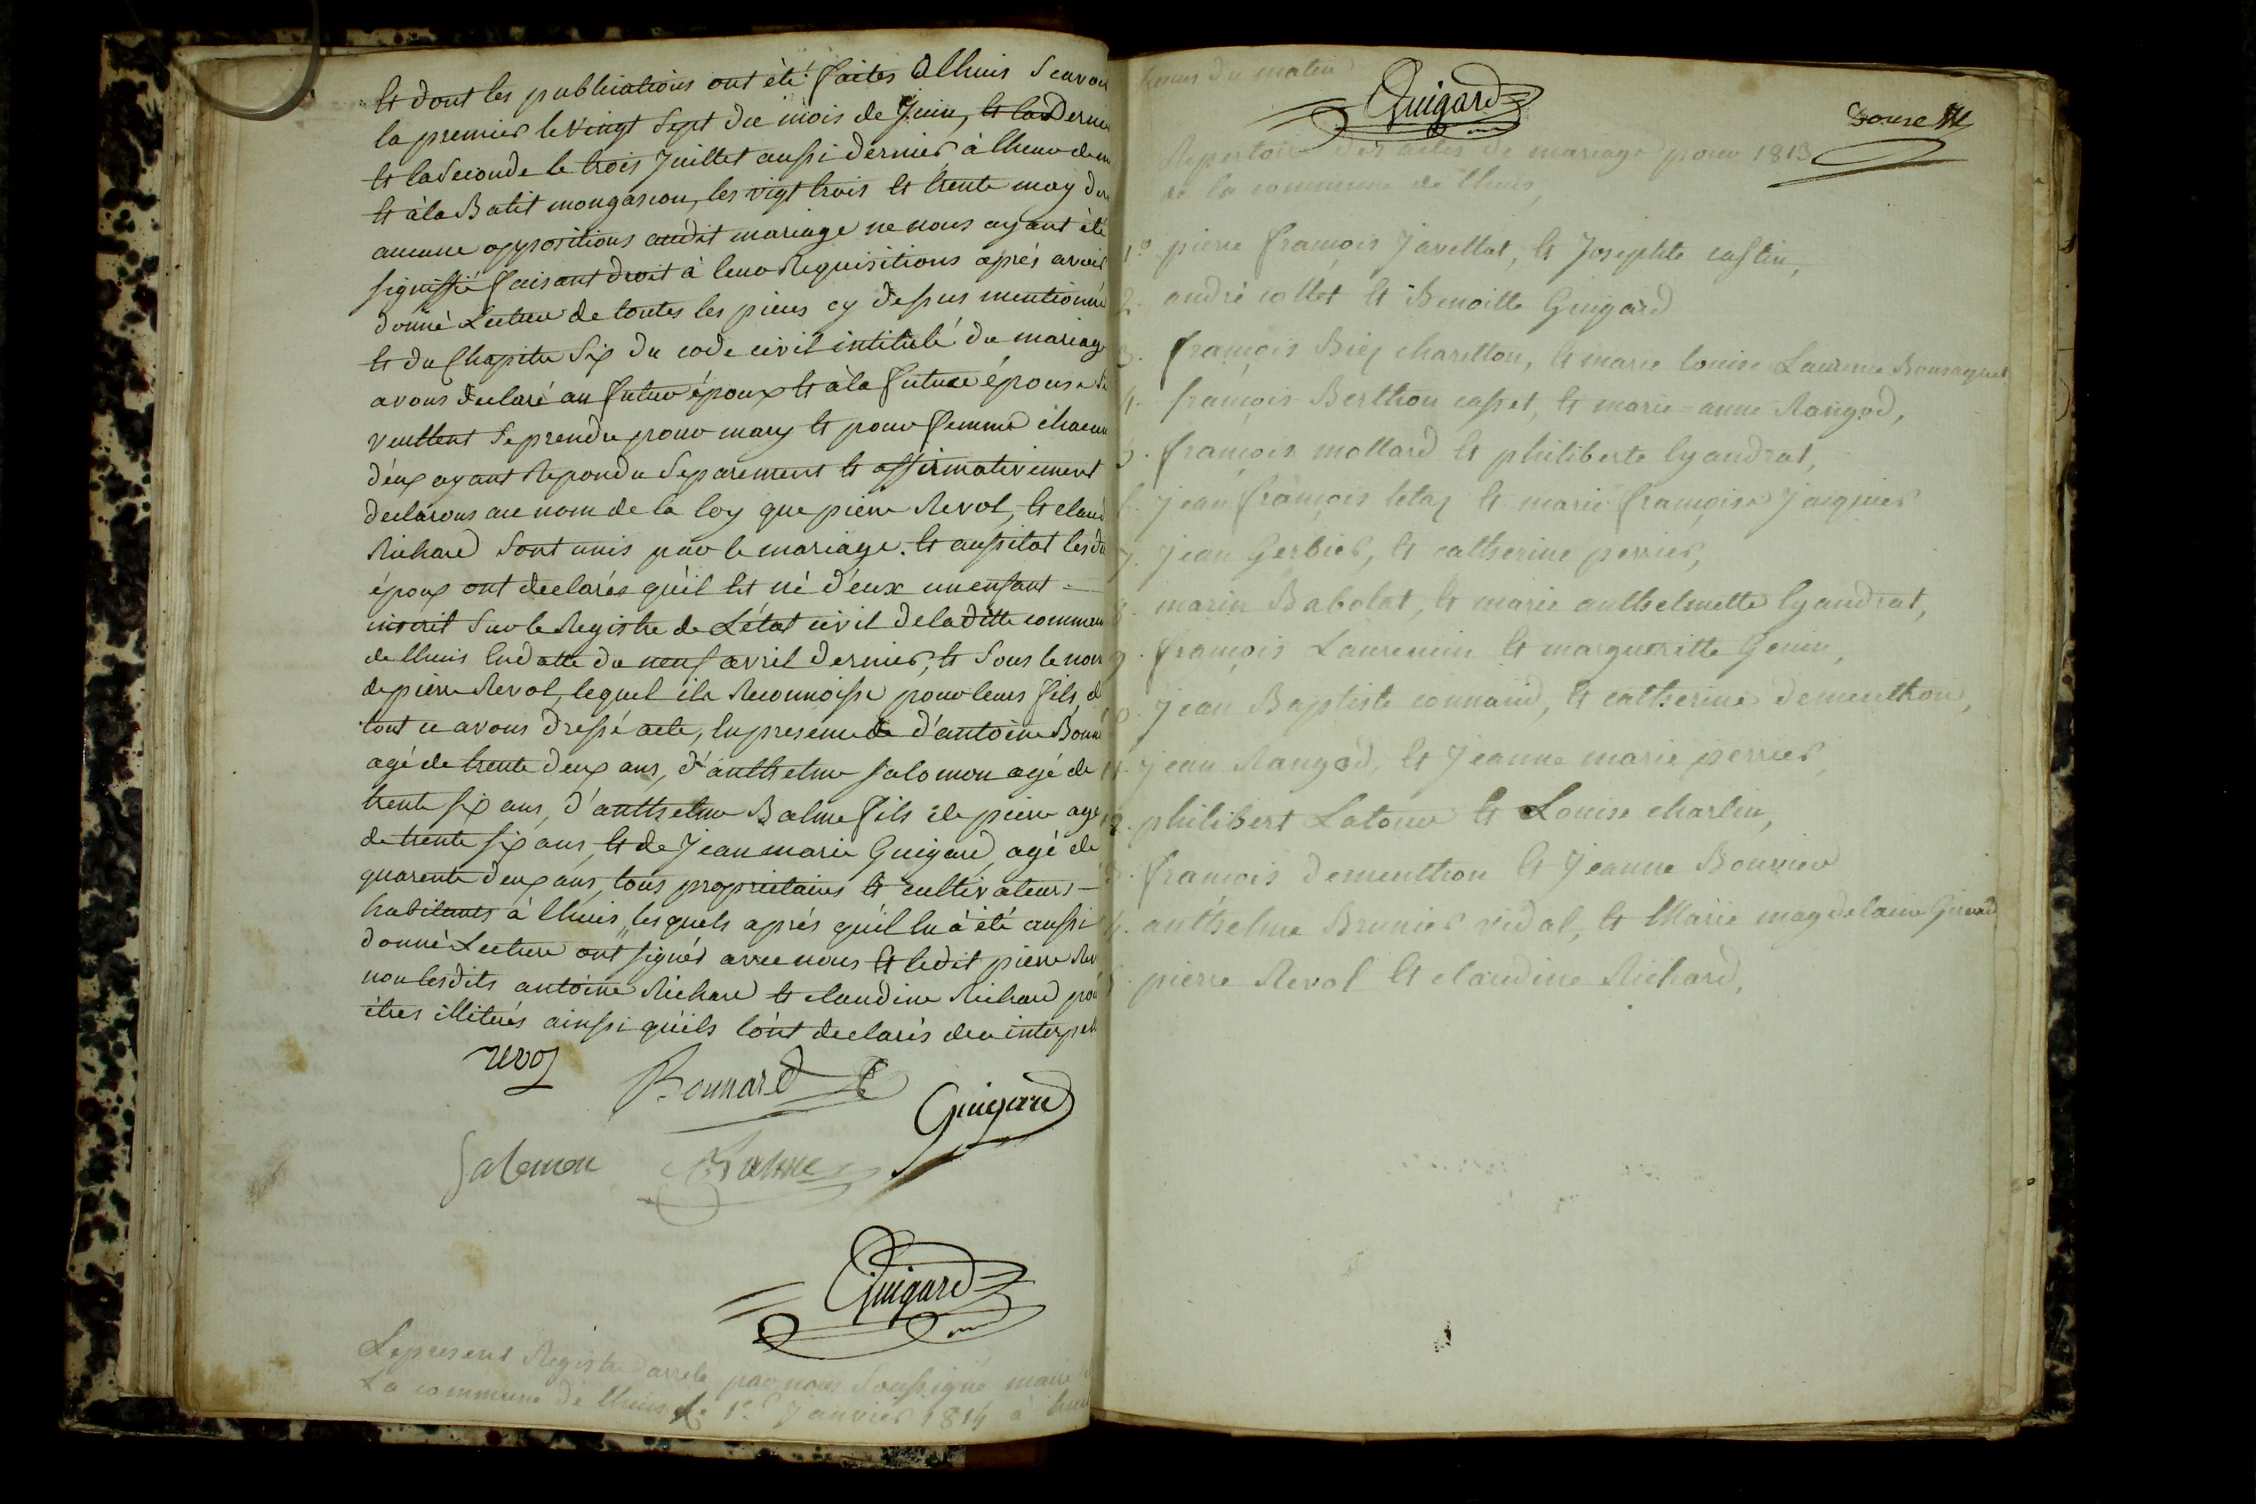 Et dont les publications ont été faites a lhuis Scavoir
la premier le vingt Sept du mois de Juin, Et la Dernier
Et la Seconde le trois Juillet aussi dernier à lheure de
Et à la Batit mongascon, les vigt trois Et trente may
aucune oppositions audit mariage ne nous ayant été
signiffié faisant droit à leur Requisitions aprés avoir
donné Lecture de toutes les pieces cy dessus mentionné
Et du Chapitre Six du code civil intitulé du mariage
avons declaré au futur époux Et à la future épouse
veullent Se prendre pour mary Et pour femme chacun
d'éux ayant Repondu Separement Et affirmativement
declarons au nom de la loy que pierre Revol, Et claud
Richard Sont unis par le mariage. Et aussitot les
époux ont declarés quéil Est né d'eux un enfant =
inscrit Sur le Registre de L'état civil de laditte commun
de lhuis En datte du neuf avril dernier, Et Sous le nom
de pierre Revol, lequel ils Reconnoisse pour leurs fils, d
tout ce avons dressé acte, En presence de d'antoine Bonn
agé de trente deux ans, d'anthelme Salomon agé de
trente six ans, d'anthelme Balme fils de pierre agé
de trente six ans, Et de Jean marie Guigard, agé de
quarente deux ans, tous proprietaires Et cultivateurs —
habitants à lhuis, lesquels aprés quéil Eu à été aussi
donné Lecture ont signés avec nous Et ledit pierre Rev
non lesdits antoine Richard Et claudine Richard pour
étres illiterés ainssi quéils lónt declarés de ce interpell
revol
Bonnard
Guigard
Salomon
Balme
Guigard
Le present Registre arreté par nous Soussigné maire d
La commune de lhuis le 1er Janvier 1814 à heure
heures du matin
Guigard
Repertoire des actes de mariage pour 1813
de la commune de lhuis,
1° pierre françois Javellot, Et Josephte castin,
2. andré collet Et Benoitte Guigard
3. françois Biez charetton, Et marie louise Laurence Bonsaquet
4. françois Berthon casset, Et marie-anne Rangod,
5. françois mollard Et philiberte lyaudrat,
6. Jean françois letaz Et marie françoise Jacquier
7. Jean Gerbier, Et catherine perrier,
8. marin Babolat, Et marie anthelmette lyaudrat,
9. françois Laurencin Et margueritte Genin,
10. Jean Baptiste connaud, Et catherine dementhon,
11. Jean Rangod, Et Jeanne marie perrier,
12. philibert Latour Et Louise charlin,
13. françois dementhon Et Jeanne Bouvier
14. anthelme Brunier vidal, Et Marie magdelaine Girard
pierre Revol Et claudine Richard,